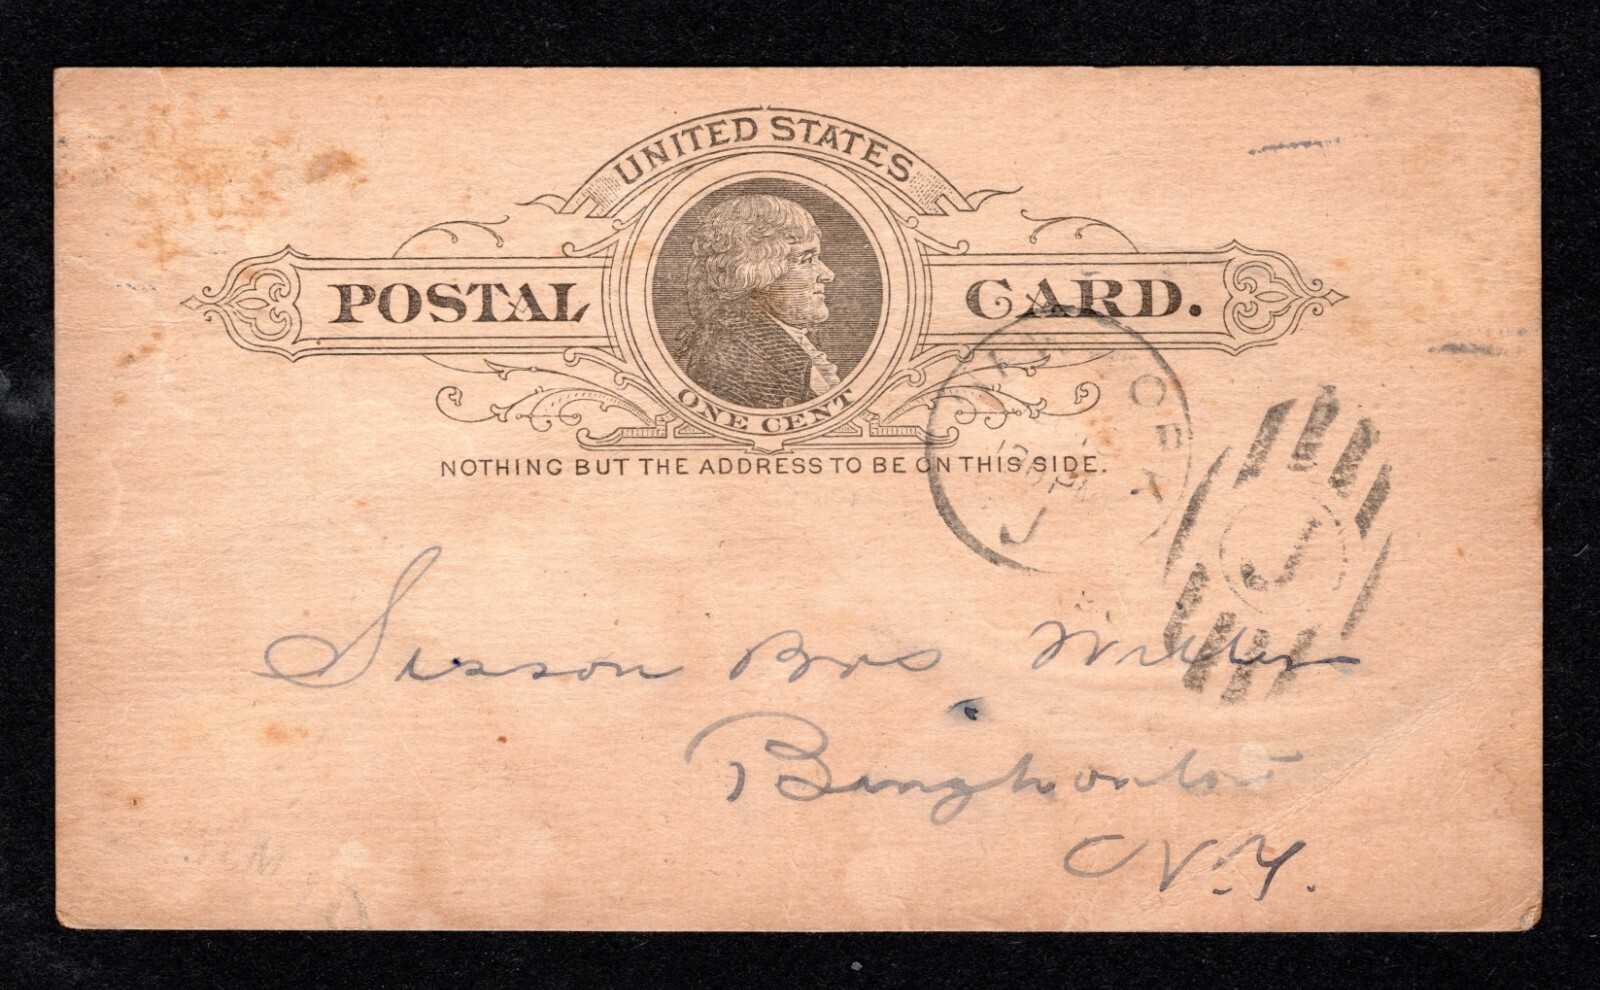 UNITED STATES
POSTAL CARD.
ONE CENT
NOTHING BUT THE ADDRESS TO BE ON THIS SIDE.
J
J
Sisson Bros
Binghamton
N.Y.